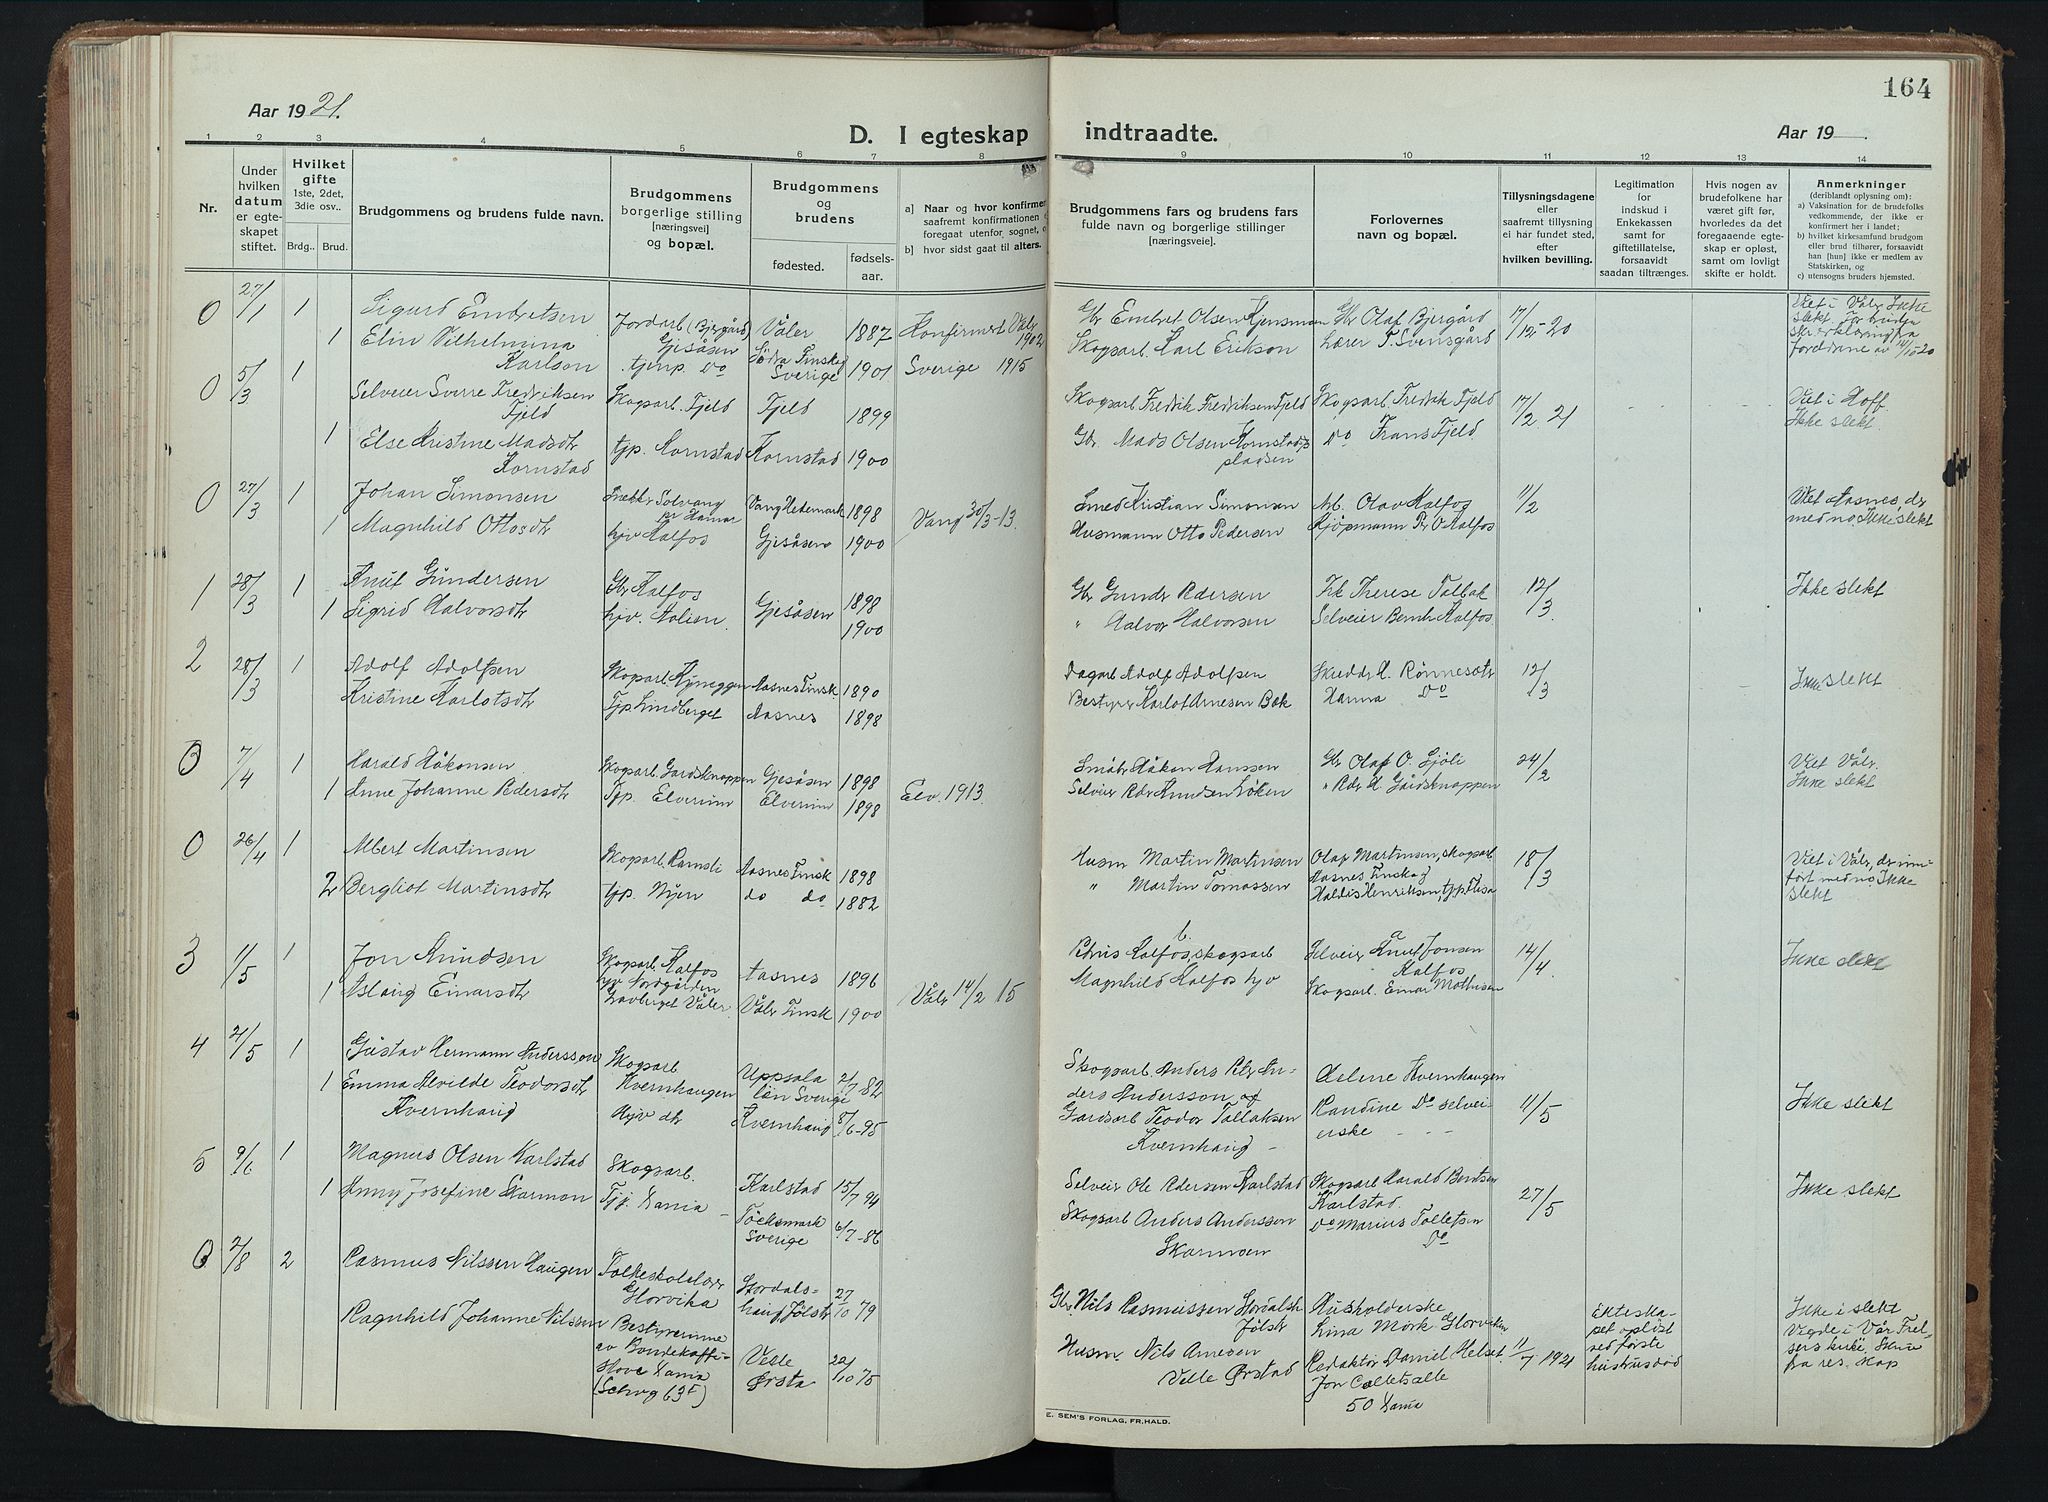 164
Aar 1921.
D. I egteskap indtraadte.
Aar 19
1 2 3 4 5 6 7 8 9 10 11 12 13 14
Nr.
Under hvilken datum er egteskapet stiftet.
Hvilket gifte 1ste, 2det, 3die osv..
Brdg.. Brud.
Brudgommens og brudens fulde navn.
Brudgommens borgerlige stilling [næringsvei] og bopæl.
Brudgommens og brudens
fødested.
fødselsaar.
a) Naar og hvor konfirmer
saafremt konfirmationen
foregaat utenfor sognet,
b) hvor sidst gaat til alters.
Brudgommens fars og brudens fars fulde navn og borgerlige stillinger [næringsveie].
Forlovernes navn og bopæl.
Tillysningsdagene eller saafremt tillysning ei har fundet sted, efter hvilken bevilling.
Legitimation for indskud i Enkekassen samt for giftetillatelse, forsaavidt saadan tiltrænges.
Hvis nogen av brudefolkene har været gift før, hvorledes da det foregaaende egteskap er opløst, samt om lovligt skifte er holdt.
Anmerkninger
(deriblandt oplysning om:)
a) Vaksination for de brudefolks vedkommende, der ikke er konfirmert her i landet;
b) hvilket kirkesamfund brudgom eller brud tilhører, forsaavidt han [hun] ikke er medlem av Statskirken, og
c) utensogns bruders hjemsted.
0 27/1 1 Sigurd Embretsen Jordarb (Bjergård) Gjesåsen Våler 1887 Konfirmert Våler 1902 Gbr Embret Olsen Kjensmoen Gbr Olaf Bjergård 17/12-20
1 Elin Vilhelmina Karlson tjenp. Do Södra Finskog Sverige 1901 Sverige 1915 Skogsarb. Karl Erikson Lærer T. Svensgård
Viet i Våler Ikke slekt
0 5/3 1 Selveier Sverre Fredriksen Fjeld Skogsarb. Fjeld Fjeld 1899 Skogsarb Fredrik Fredriksen Fjeld Skogsarb Fredrik Fjeld 17/2 21 Viet i Hoff. Ikke slekt
1 Else Kristine Madsdtr Kornstad tjp. Kornstad Kornstad 1900 Gbr. Mads Olsen Kornstad pladsen Do Frans Fjeld
0 27/3 1 Johan Simonsen Solvang pr Hamar Vang Hedemark 1898 Vang 30/3-13. Smed Kristian Simonsen Arb. Olav Kalfos 11/2
1 Magnhild Ottosdtr hjv Kalfos Gjesåsen 1900 Husmann Otto Pedersen Kjøpmann Kalfos
1 28/3 1 Knut Gundersen Gbr Kalfos Gjesåsen 1898 Gbr Gunder Pedersen Frk Therese Talbak 12/3 Ikke slekt
1 Sigrid Halvorsdtr hjv. Aolien 1900 " Halvor Halvorsen Selveier Bernh. Kalfos
2 28/3 1 Adolf Adolfsen Skogsarb. Kjøneggen Aasnes Finsk 1890 Dagarb Adolf Adolfsen Skredder K. Rønneset 12/3 Ikke slekt
Kristine Karlotsdtr Tjp Lindberget Aasnes 1898 Bestyrer Karlot Arnesen Bak Hanna Do
0 7/4 1 Harald Håkonsen Skogsarb. Gardsknappen Gjesåsen 1898 Småbr Håkon Hanssen Gbr Olaf O. Sjøli 24/2 Viet Våler. Ikke slekt
1 Anne Johanne Pedersdtr Tjp. Elverum Elverum 1898 Elv. 1913. Selveier Peder Knudsen Løken " Peder K. Gårdsknappen
0 26/4 1 Albert Martinsen Skogsarb. Ramsli Aasnes Finsk 1898 Husm Martin Martinsen Olaf Martinsen, skogsarb Aasnes Finskog 18/3
2 Bergliot Martinsdtr tjp. Myren do do 1882 " Martin Tomassen Haldis Henriksen, tjp Flisa
3 1/5 1 Jon Knudsen Skogsarb. Kalfos Aasnes 1896 Petrus Kalfos, skogsarb Selveier Knut Jonsen Kalfos 14/4 Ikke slekt
1 Aslaug Einarsdtr hjv Nordgården Våler Våler Finsk 1900 Våler 14/2 15 Magnhild Kalfos hjv Skogsarb. Einar Mathisen
4 21/5 1 Gustav Hermann Andersson Skogsarb Kvernhaugen Uppsala län Sverige 2/7 82 Skogsarb Anders Petr Anders Andersson og Helene Kvernhaugen 11/5 Ikke slekt
1 Emma Alvilde Teodorsdtr Kvernhaug Hjv do Kvernhaug 8/6-95 Gardsarb Teodor Tollaksen Kvernhaug Randine Do selveierske
5 9/6 1 Magnus Olsen Karlstad Skogsarb. Karlstad 15/7 94 Selveier Ole Pedersen Karlstad Skogsarb Harald Berntsen Karlstad. 27/5 Ikke slekt
1 Anny Josefine Skarmon Tjp. Kania Töcksmark Sverige 6/7-86 Skogsarb Anders Andersson Skarmoen Do Marius Tollefsen Do
0 2/8 2 Rasmus Nilssen Haugen Folkeskolelærer Glorvika Stordalshaug Jølster 27/10 79 Gbr Nils Rasmussen Stordalsh Jølster Husholderske Lina Mørk Glorviken 11/7 1921 Ekteskapet opløst ved første hustrus død
Ragnhild Johanne Nilssen Bestyrerinne av Bondekaffistove Kania Velle Ørsta 22/10 75 Husm. Nils Arnesen Velle Ørstad Redaktør Daniel Helset Jon Colletsalle 50 Kania
Ikke i slekt Vigde i Vår Frelsers kirke. fra res. kap
E. SEM'S FORLAG, FR.HALD.